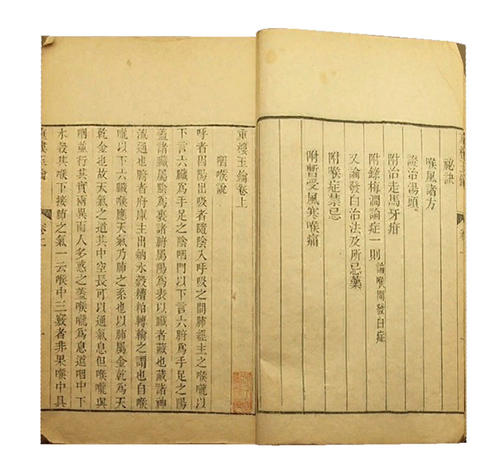 秘訣
喉風諸方
證治湯頭
附治走馬牙疳
附錄梅澗論症一則 論喉間發白症
又論發白治法及所忌藥
附喉症禁忌
附暫受風寒喉痛
重樓玉鑰卷上
咽喉說
呼者因陽出吸者隨陰入呼吸之間肺經主之喉嚨以
下言六臟爲手足之陰咽門以下言六腑爲手足之陽
蓋諸臟屬陰爲裏諸腑屬陽爲表以臟者藏也藏諸神
流通也腑者府庫主出納水穀糟粕轉輸之謂也自喉
嚨以下六臟喉應天氣乃肺之系也以肺屬金乾爲天
乾金也故天氣之道其中空長可以通氣息但喉嚨與
咽並行其實兩異而人多惑之蓋喉嚨爲息道咽中下
水穀其喉下接肺之氣一云喉中三竅者非果喉中具
重樓玉鑰
卷上